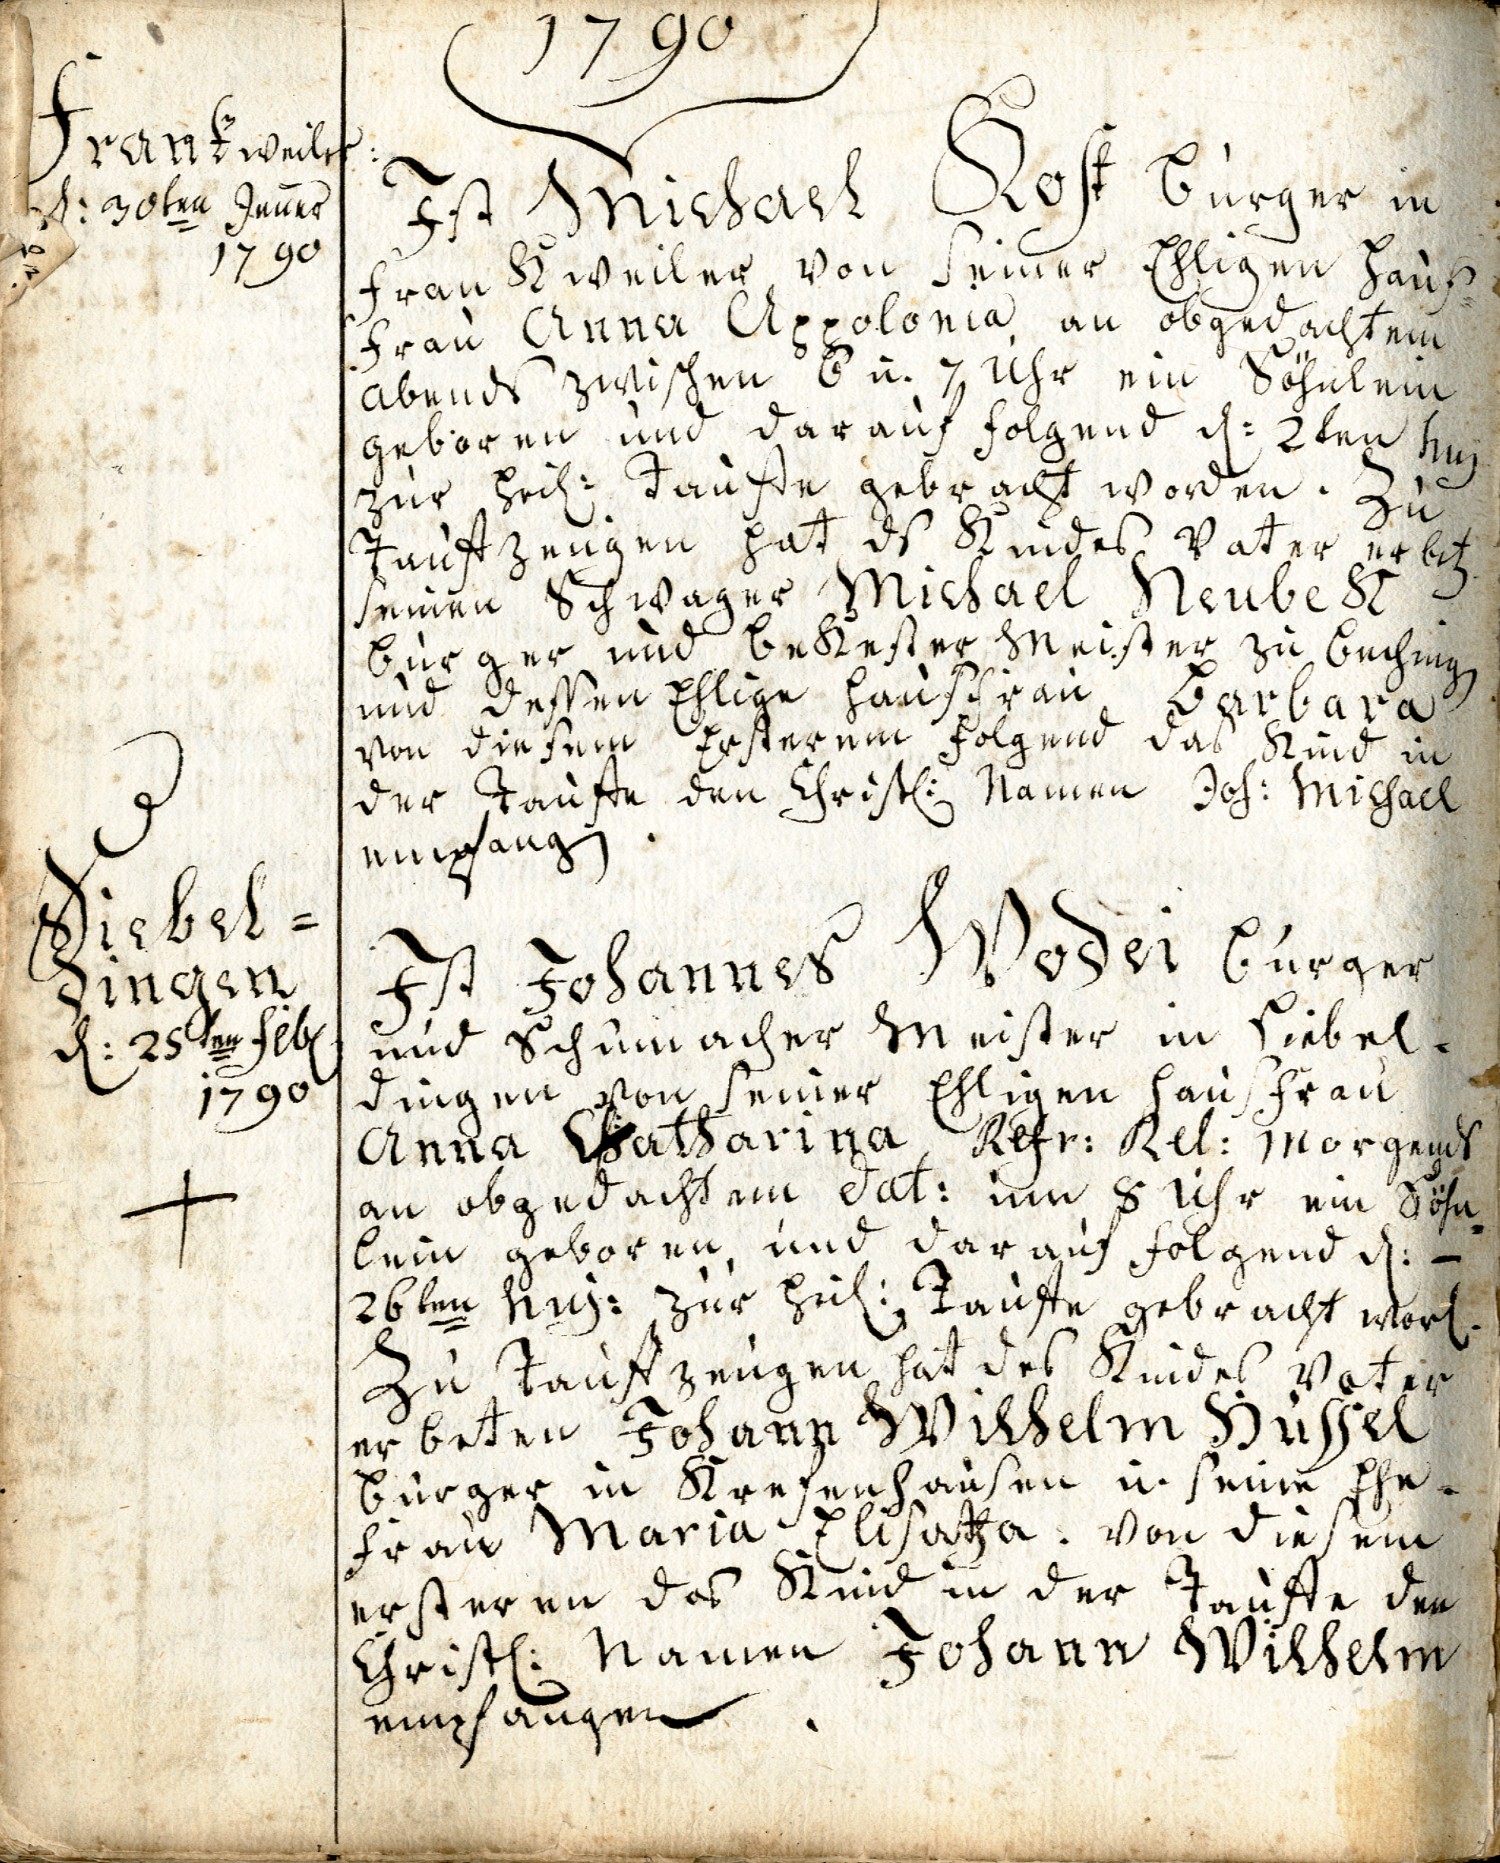 1790
Frankweiler:
d: 30ten Jenner
1790
Ist Michael Kost burger in
Frankweiler von seiner Ehligen Hauß-
frau Anna Appolonia an obgedachtem
abends zwischen 6 u. 7 Uhr ein Söhnlein
geboren und darauf folgend d: 2ten huj
zur heil: Tauffe gebracht worden. Zu
Tauffzeugen hat ds Kindes Vater erbet.
seinen Schwager Michael Neubek
burger und beKester Meister zu beching
und dessen Ehlige hausfrau Barbara
von diesem Ersterem folgend das Kind in
der Tauffe den Christl: Namen Joh: Michael
empfang.
Siebel=
dingen
d: 25ten Feb.
1790
Ist Johannes Wodei burger
und Schumacher Meister in Siebel-
dingen von seiner Ehligen Hausfrau
Anna Chatharina Refr: Rel: Morgends
an obgedachtem Dat: um 8 Uhr ein Söhn-
lein geboren, und darauf folgend d: –
26ten Huj: zur heil: Tauffe gebracht word.
Zu Tauffzeugen hat des Kindes Vater
erbeten Johann Wilhelm Hüssel
burger in Krefenhausen u. seine Ehe-
frau Maria Elisatha. von diesem
ersteren das Kind in der Tauffe den
Christl: Namen Johann Wilhelm
empfangen.